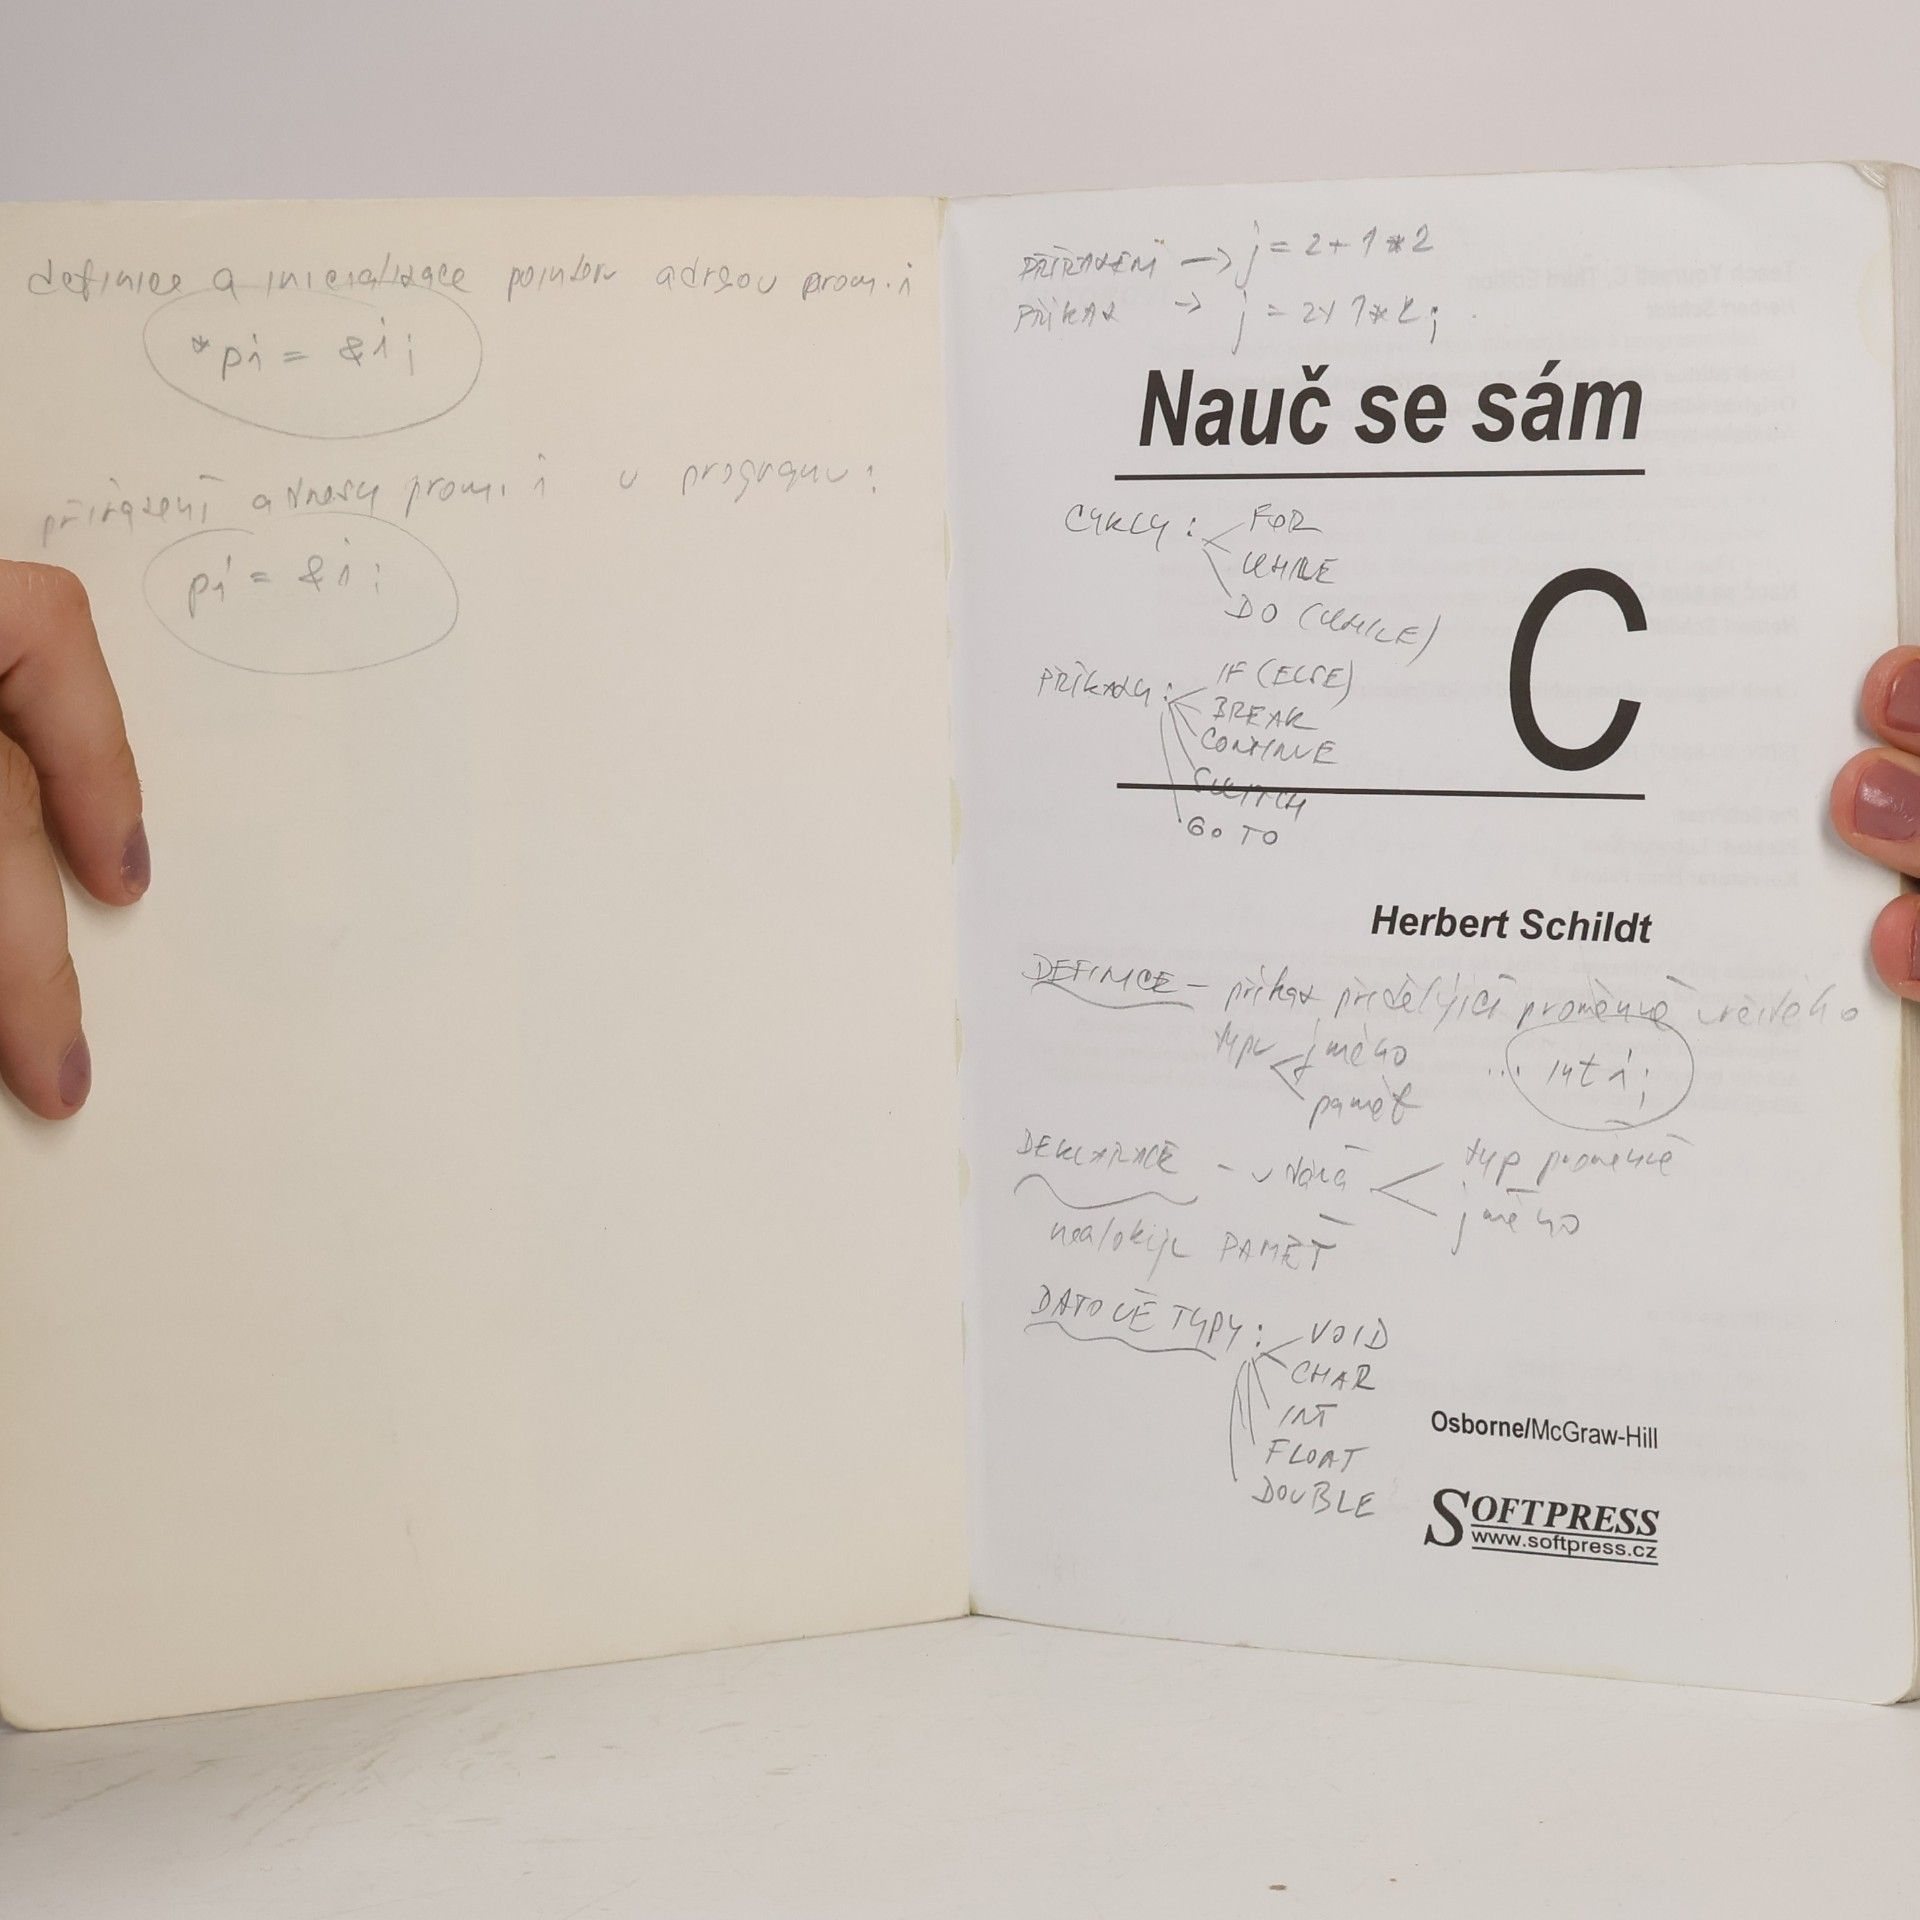 definice a inicializace pointeru adresou prom. i
*pi = &i;
přiřazení adresy prom. i v programu:
pi = &i;
PŘÍŘAZENÍ → j = 2 + 1 * 2
PŘÍKAZ → j = 2+1*2;
Nauč se sám
C
CYKLY:
FOR
WHILE
DO (WHILE)
PŘÍKAZY:
IF (ELSE)
BREAK
CONTINUE
SWITCH
GO TO
Herbert Schildt
DEFINICE - příkaz přidělující proměnné určitého
typu jméno ... int i;
paměť
DEKLARACE - udává typ proměnné
jméno
nealokuje PAMĚŤ
DATOVÉ TYPY:
VOID
CHAR
INT
FLOAT
DOUBLE
Osborne/McGraw-Hill
SOFTPRESS
www.softpress.cz